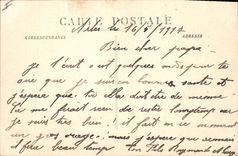 CARTE POSTALE
CORRESPONDANCE ADRESSE
le 16/5/1914
Bien cher papa
je t'écris ces quelques mots pour te
dire que je suis en bonne santé et
j'espère que tu es de même
Tu me ferait rien de rester longtemps car
je suis très bien! il fait en ce moment
un gros orage; mais j'espère que demain
il fera beau temps Ton fils Raymond